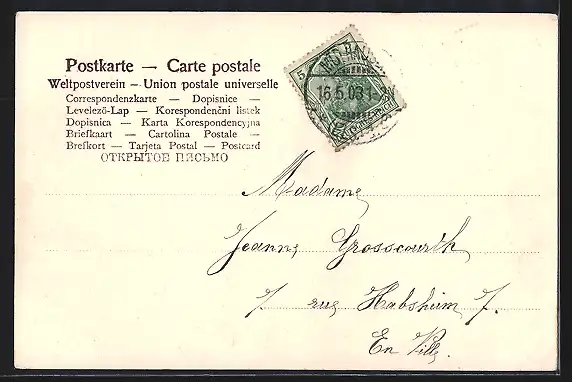 Postkarte — Carte postale
Weltpostverein — Union postale universelle
Correspondenzkarte — Dopisnice —
Levelező-Lap — Korespondenční listek
Dopisnica — Karta Korespondencyjna
Briefkaart — Cartolina Postale —
Brefkort — Tarjeta Postal — Postcard
ОТКРЫТОЕ ПИСЬМО
5
16.5.03.1-
Madame
Jeanne Grosscourth
7 rue Habsheim 7.
En Ville.